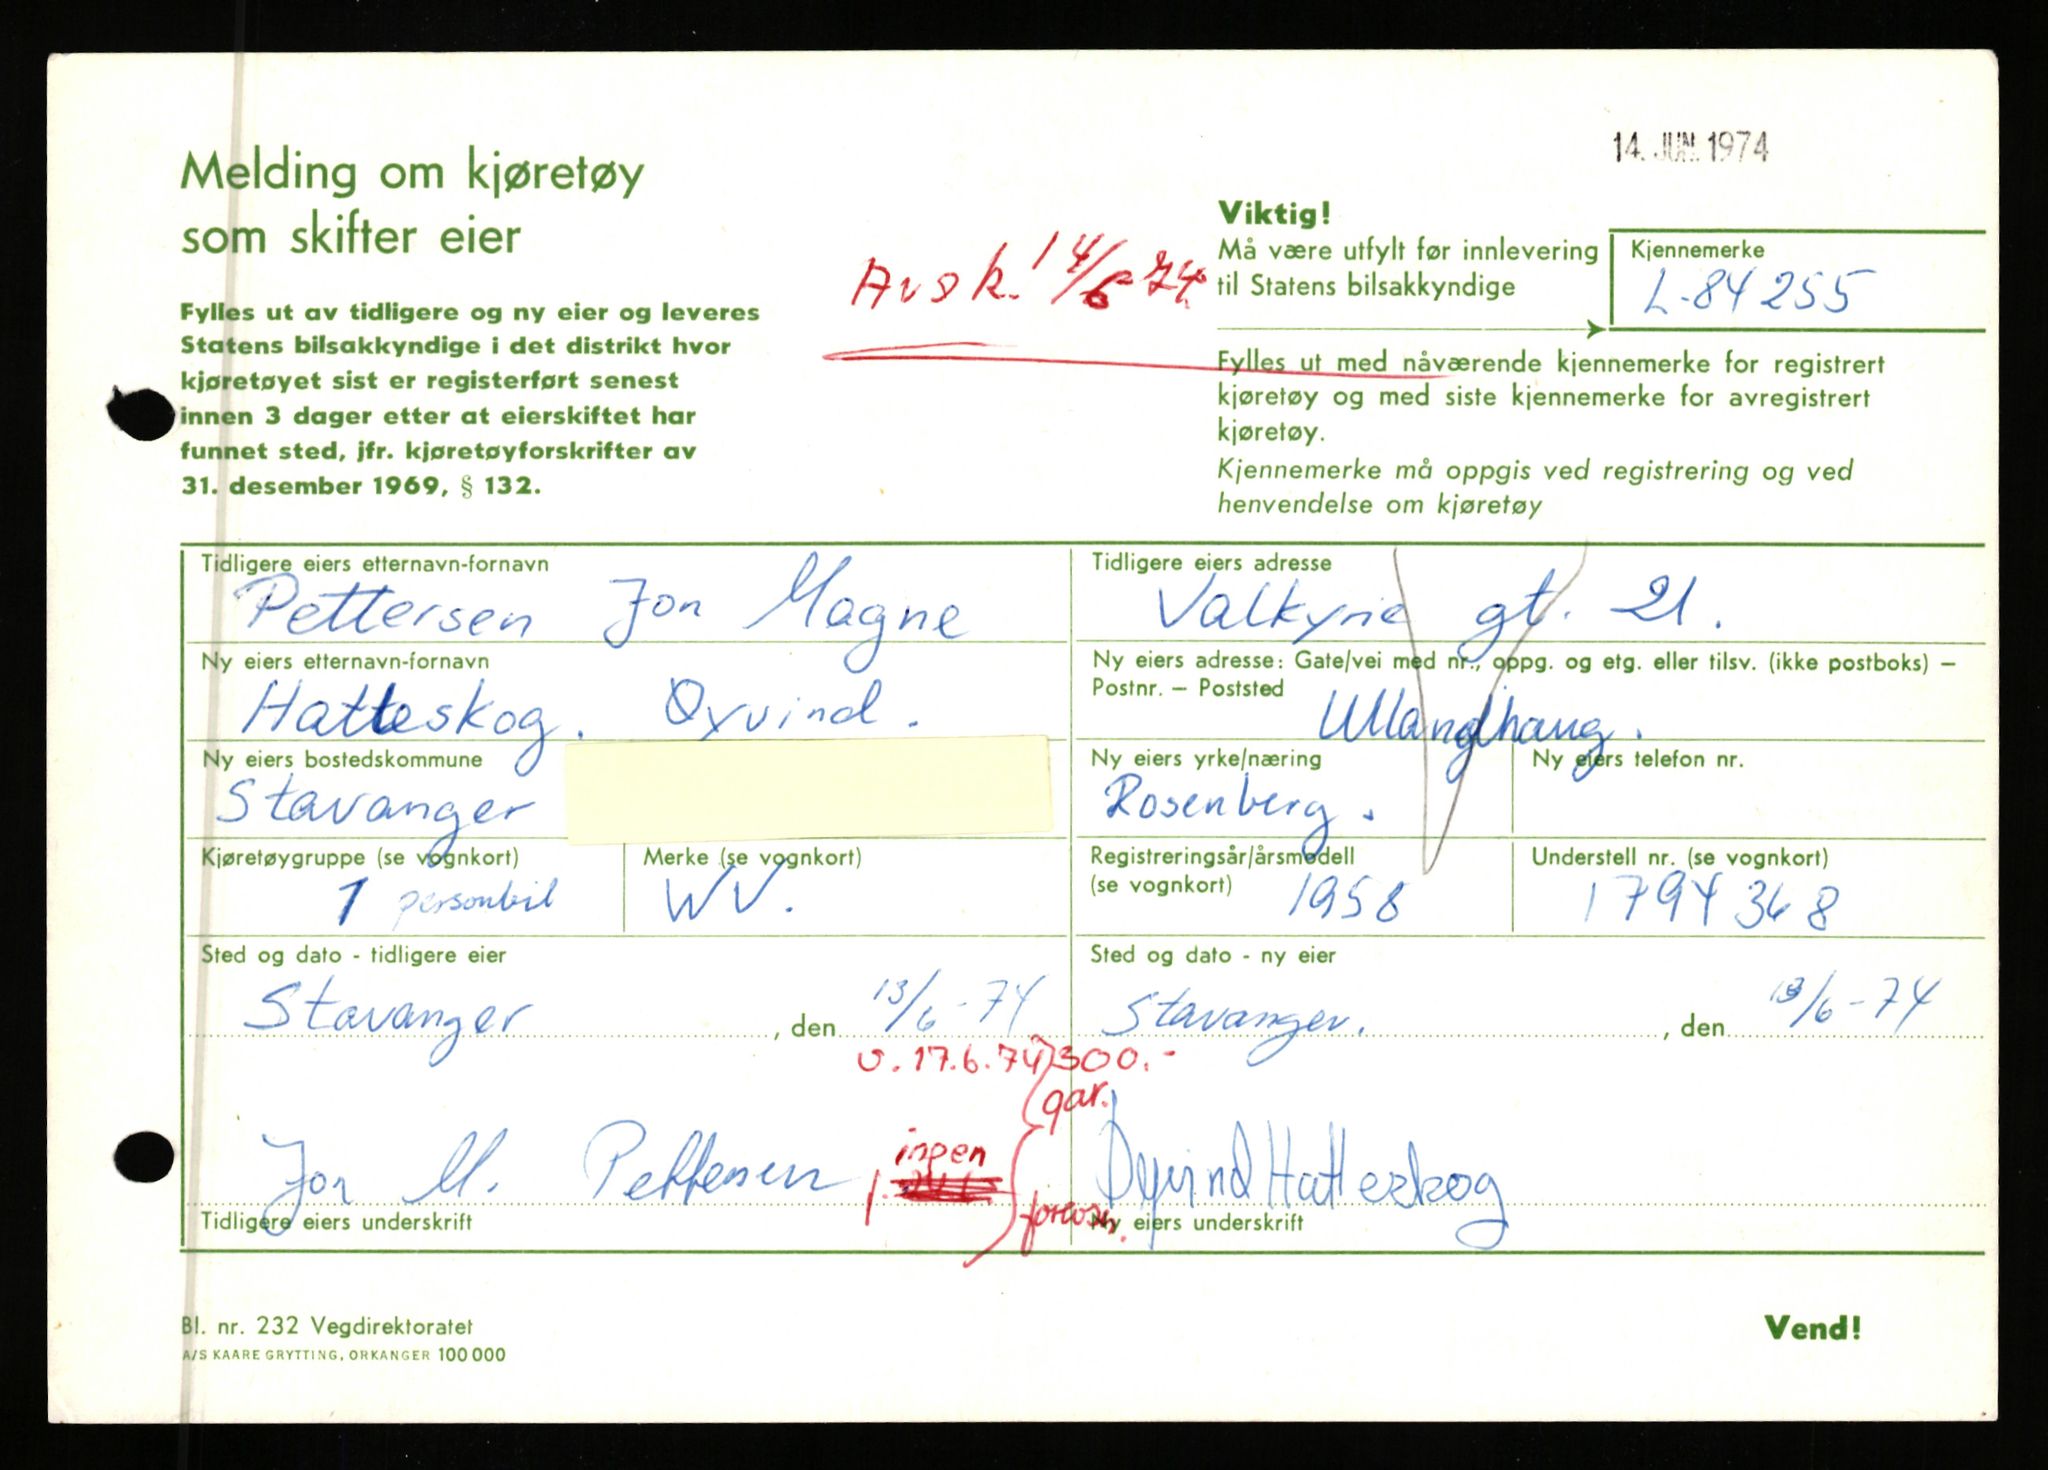 14. JUN. 1974
Melding om kjøretøy
som skifter eier
Avsk. 14/6 74.
Fylles ut av tidligere og ny eier og leveres
Statens bilsakkyndige i det distrikt hvor
kjøretøyet sist er registerført senest
innen 3 dager etter at eierskiftet har
funnet sted, jfr. kjøretøyforskrifter av
31. desember 1969, § 132.
Viktig!
Må være utfylt før innlevering
til Statens bilsakkyndige
Kjennemerke
L-84255
Fylles ut med nåværende kjennemerke for registrert
kjøretøy og med siste kjennemerke for avregistrert
kjøretøy.
Kjennemerke må oppgis ved registrering og ved
henvendelse om kjøretøy
Tidligere eiers etternavn-fornavn
Pettersen Jon Magne
Tidligere eiers adresse
Valkyrie gt. 21.
Ny eiers etternavn-fornavn
Hatteskog. Øyvind.
Ny eiers adresse: Gate/vei med nr., oppg. og etg. eller tilsv. (ikke postboks) –
Postnr. – Poststed
Ullandhaug.
Ny eiers bostedskommune
Stavanger
Ny eiers yrke/næring
Rosenberg.
Ny eiers telefon nr.
Kjøretøygruppe (se vognkort)
1 personbil
Merke (se vognkort)
WV.
Registreringsår/årsmodell
(se vognkort)
1958
Understell nr. (se vognkort)
1794368
Sted og dato - tidligere eier
Stavanger, den 13/6-74
Sted og dato - ny eier
Stavanger., den 13/6-74
v. 17.6.74 300.-
gar.
Jon M. Pettersen
ingen
Øyvind Hatteskog
Tidligere eiers underskrift
Ny eiers underskrift
Bl. nr. 232 Vegdirektoratet
A/S KAARE GRYTTING, ORKANGER 100 000
Vend!